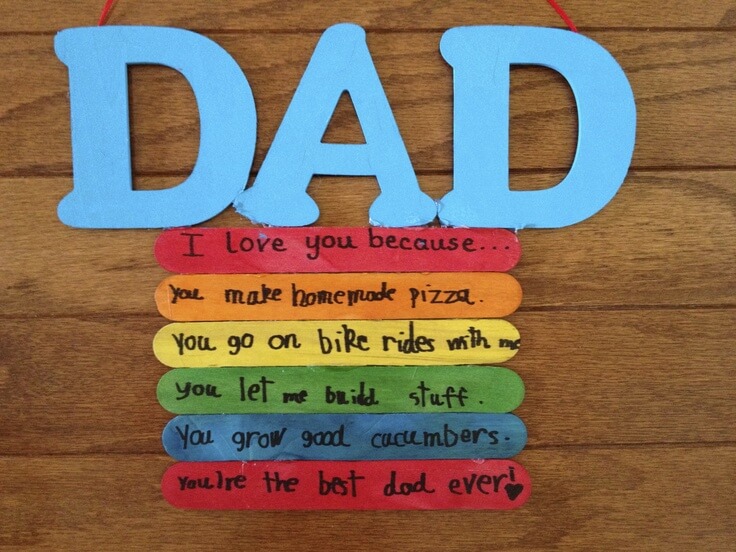 DAD
I love you because...
You make homemade pizza.
You go on bike rides with me
you let me build stuff.
You grow good cucumbers.
You're the best dad ever!